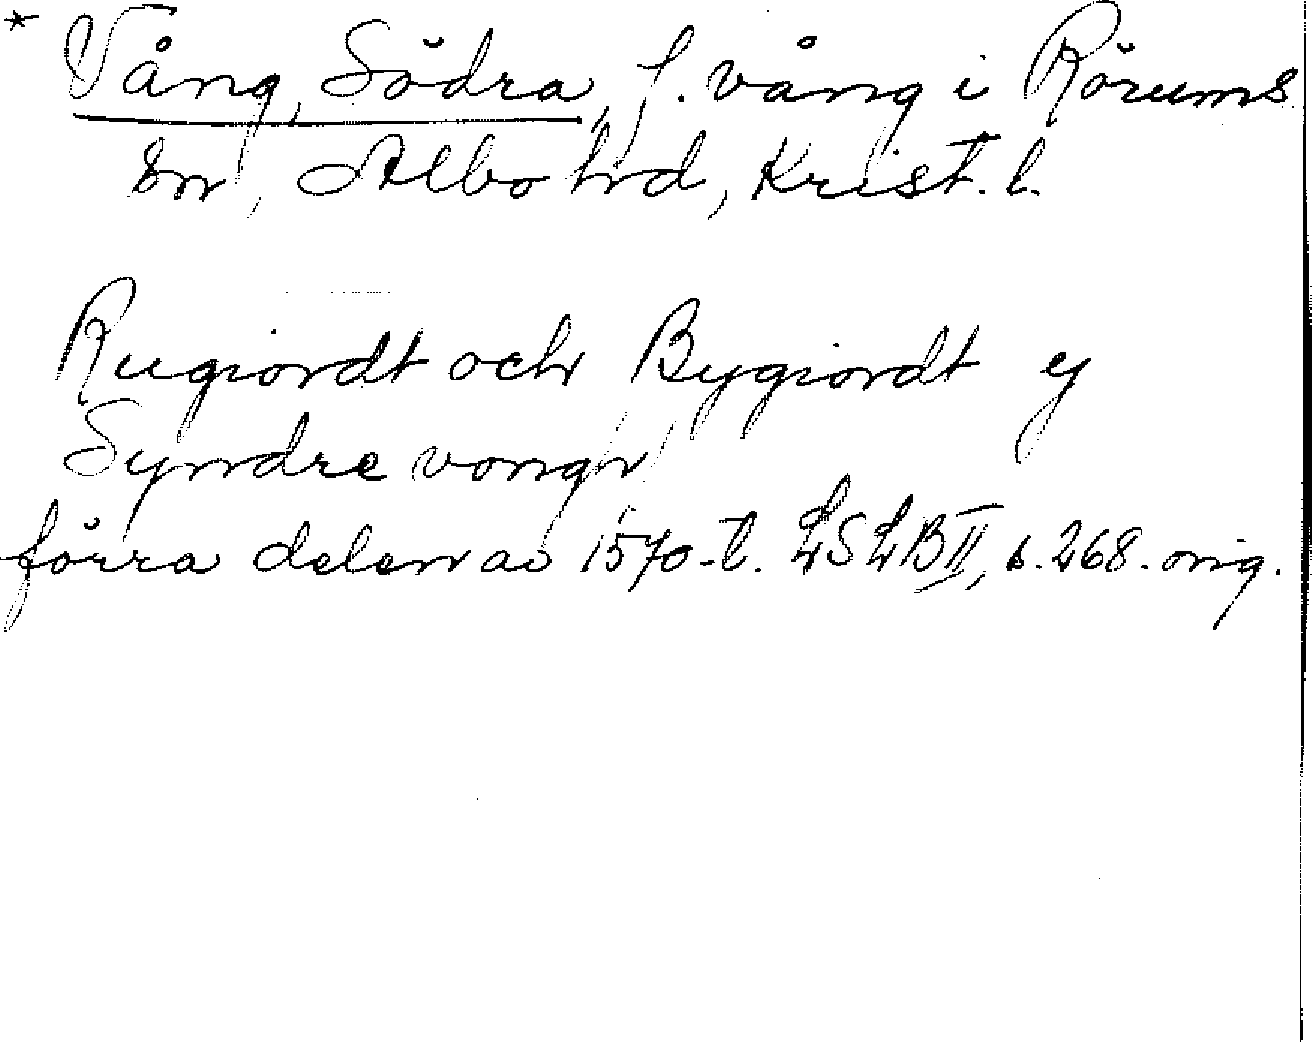 * Vång, Södra, f. vång i Rörums
sn, Albo hrd, Krist. l.
Rugiordt och Bygiordt ey
Syndre vongh
förra delen av 1570-t. LSLB II, s. 268. orig.